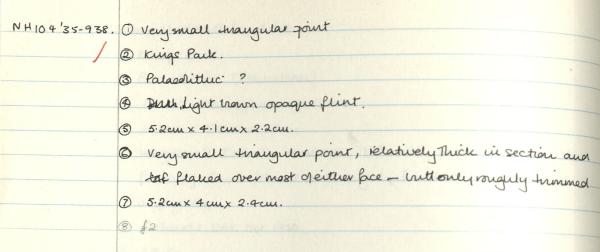 NH104'35-938. ① Very small triangular point
② Kings Park.
③ Palaeolithic ?
④ Light brown opaque flint.
⑤ 5.2cm x 4.1cm x 2.2cm.
⑥ Very small triangular point, relatively thick in section and
flaked over most of either face - but only roughly trimmed
⑦ 5.2cm x 4cm x 2.4cm.
⑧ £2